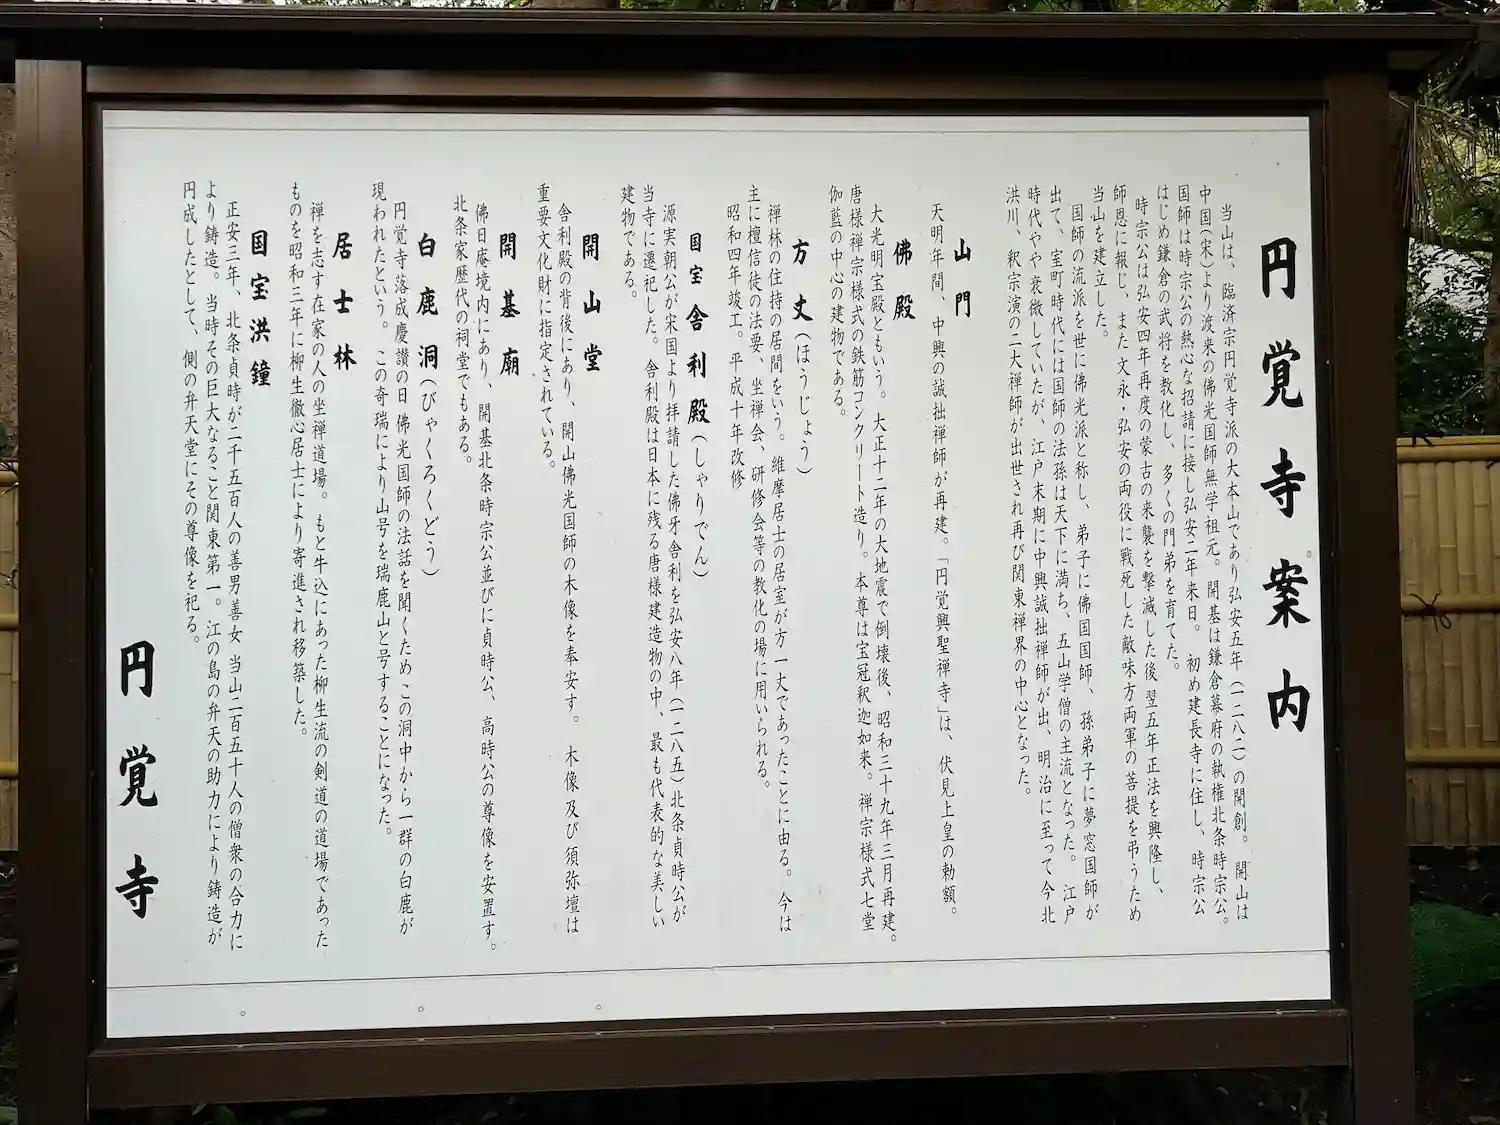 円覚寺案内
当山は、臨済宗円覚寺派の大本山であり弘安五年(一二八二)の開創。開山は
中国(宋)より渡来の佛光国師無学祖元。開基は鎌倉幕府の執権北条時宗公。
国師は時宗公の熱心な招請に接し弘安二年来日。初め建長寺に住し、時宗公
はじめ鎌倉の武将を教化し、多くの門弟を育てた。
時宗公は弘安四年再度の蒙古の来襲を撃滅した後翌五年正法を興隆し、
師恩に報じ、また文永・弘安の両役に戦死した敵味方両軍の菩提を弔うため
当山を建立した。
国師の流派を世に佛光派と称し、弟子に佛国国師、孫弟子に夢窓国師が
出て、室町時代には国師の法孫は天下に満ち、五山学僧の主流となった。江戸
時代やや衰微していたが、江戸末期に中興誠拙禅師が出、明治に至って今北
洪川、釈宗演の二大禅師が出世され再び関東禅界の中心となった。
山門
天明年間、中興の誠拙禅師が再建。「円覚興聖禅寺」は、伏見上皇の勅額。
佛殿
大光明宝殿ともいう。大正十二年の大地震で倒壊後、昭和三十九年三月再建。
唐様禅宗様式の鉄筋コンクリート造り。本尊は宝冠釈迦如来。禅宗様式七堂
伽藍の中心の建物である。
方丈(ほうじょう)
禅林の住持の居間をいう。維摩居士の居室が方一丈であったことに由る。今は
主に檀信徒の法要、坐禅会、研修会等の教化の場に用いられる。
昭和四年竣工。平成十年改修
国宝舎利殿(しゃりでん)
源実朝公が宋国より拝請した佛牙舎利を弘安八年(一二八五)北条貞時公が
当寺に遷祀した。舎利殿は日本に残る唐様建造物の中、最も代表的な美しい
建物である。
開山堂
舎利殿の背後にあり、開山佛光国師の木像を奉安す。木像及び須弥壇は
重要文化財に指定されている。
開基廟
佛日庵境内にあり、開基北条時宗公並びに貞時公、高時公の尊像を安置す。
北条家歴代の祠堂でもある。
白鹿洞(びゃくろくどう)
円覚寺落成慶讃の日佛光国師の法話を聞くためこの洞中から一群の白鹿が
現われたという。この奇瑞により山号を瑞鹿山と号することになった。
居士林
禅を志す在家の人の坐禅道場。もと牛込にあった柳生流の剣道の道場であった
ものを昭和三年に柳生徹心居士により寄進され移築した。
国宝洪鐘
正安三年、北条貞時が二千五百人の善男善女 当山二百五十人の僧衆の合力に
より鋳造。当時その巨大なること関東第一。江の島の弁天の助力により鋳造が
円成したとして、側の弁天堂にその尊像を祀る。
円覚寺